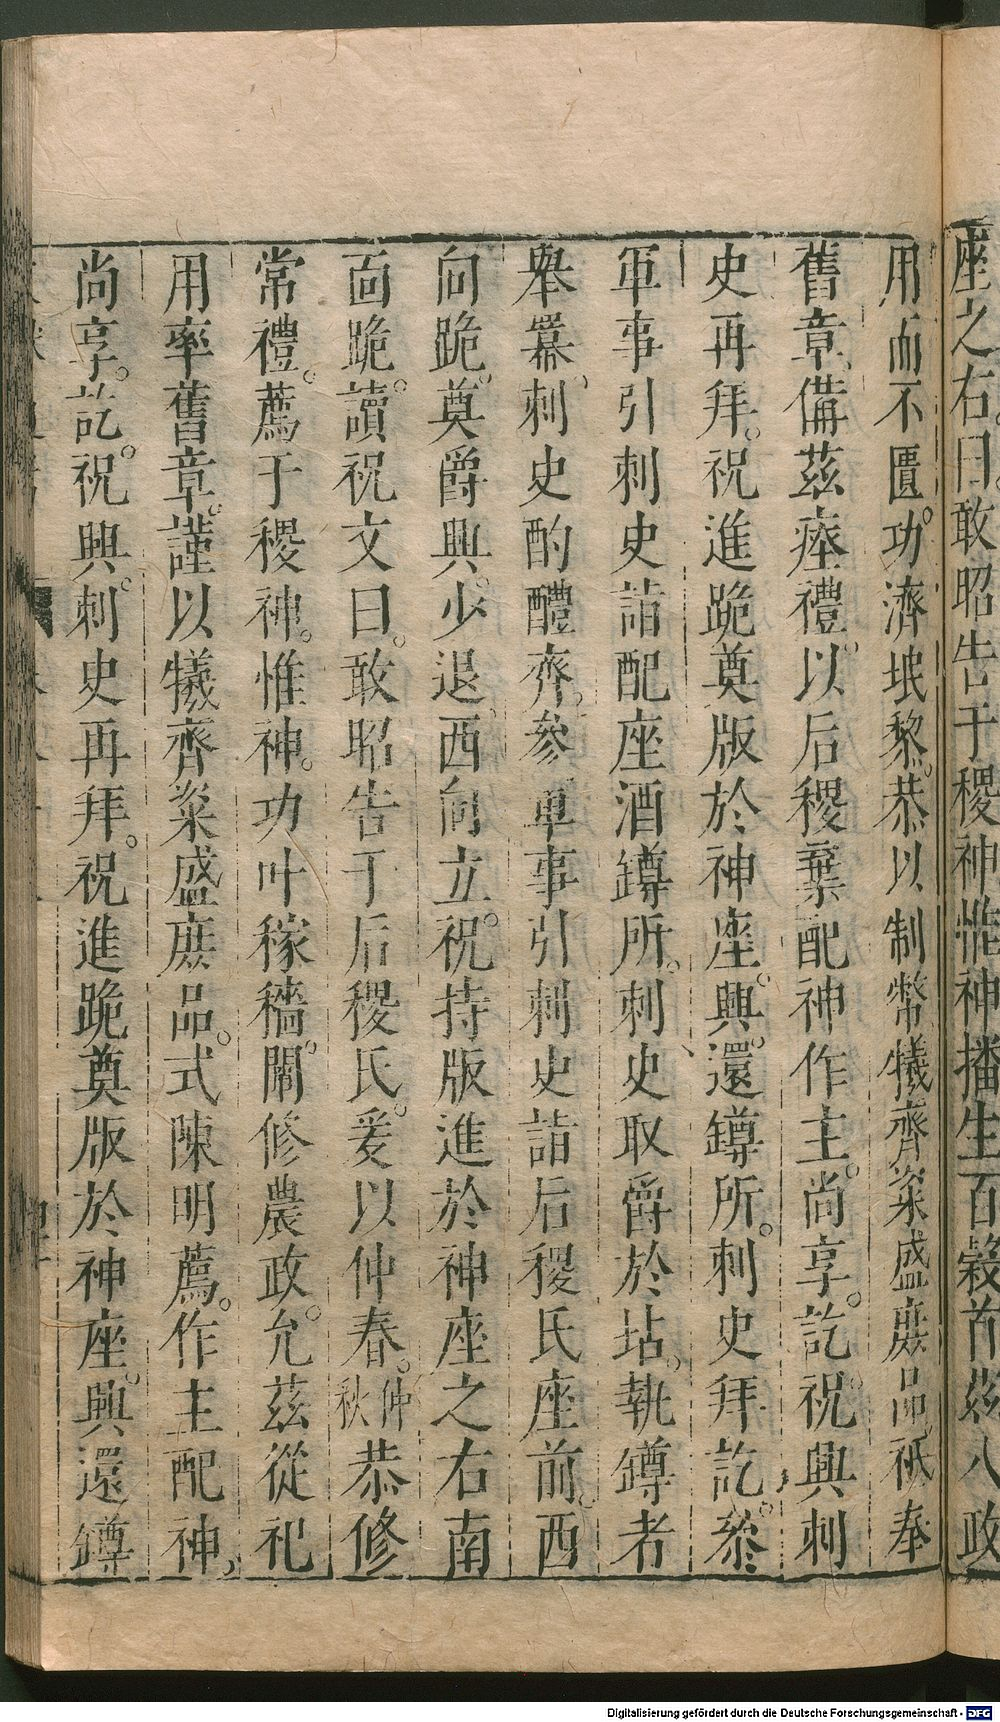 座之右曰。敢昭告于稷神惟神播生百穀首茲八政
用而不匱。功濟垊黎。恭以制幣犧齊粢盛庶品祇奉
舊章備茲瘞禮。以后稷棄配神作主。尚享。訖。祝興刺
史再拜。祝進跪奠版於神座。興。還罇所。刺史拜訖。叅
軍事引刺史詣配座酒罇所。刺史取爵於坫。執罇者
舉羃。刺史酌醴齊。參軍事引刺史詣后稷氏座前。西
向跪。奠爵興。少退西向立。祝。持版進於神座之右南
面跪。讀祝文曰。敢昭告于后稷氏。爰以仲春。仲秋恭修
常禮。薦于稷神。惟神。功叶稼穡。闡修農政。允茲從祀
用率舊章。謹以犧齊粢盛庶品。式陳明薦。作主配神，
尚享。訖。祝興。刺史再拜。祝進跪奠版於神座。興還罇
Digitalisierung gefördert durch die Deutsche Forschungsgemeinschaft - DFG